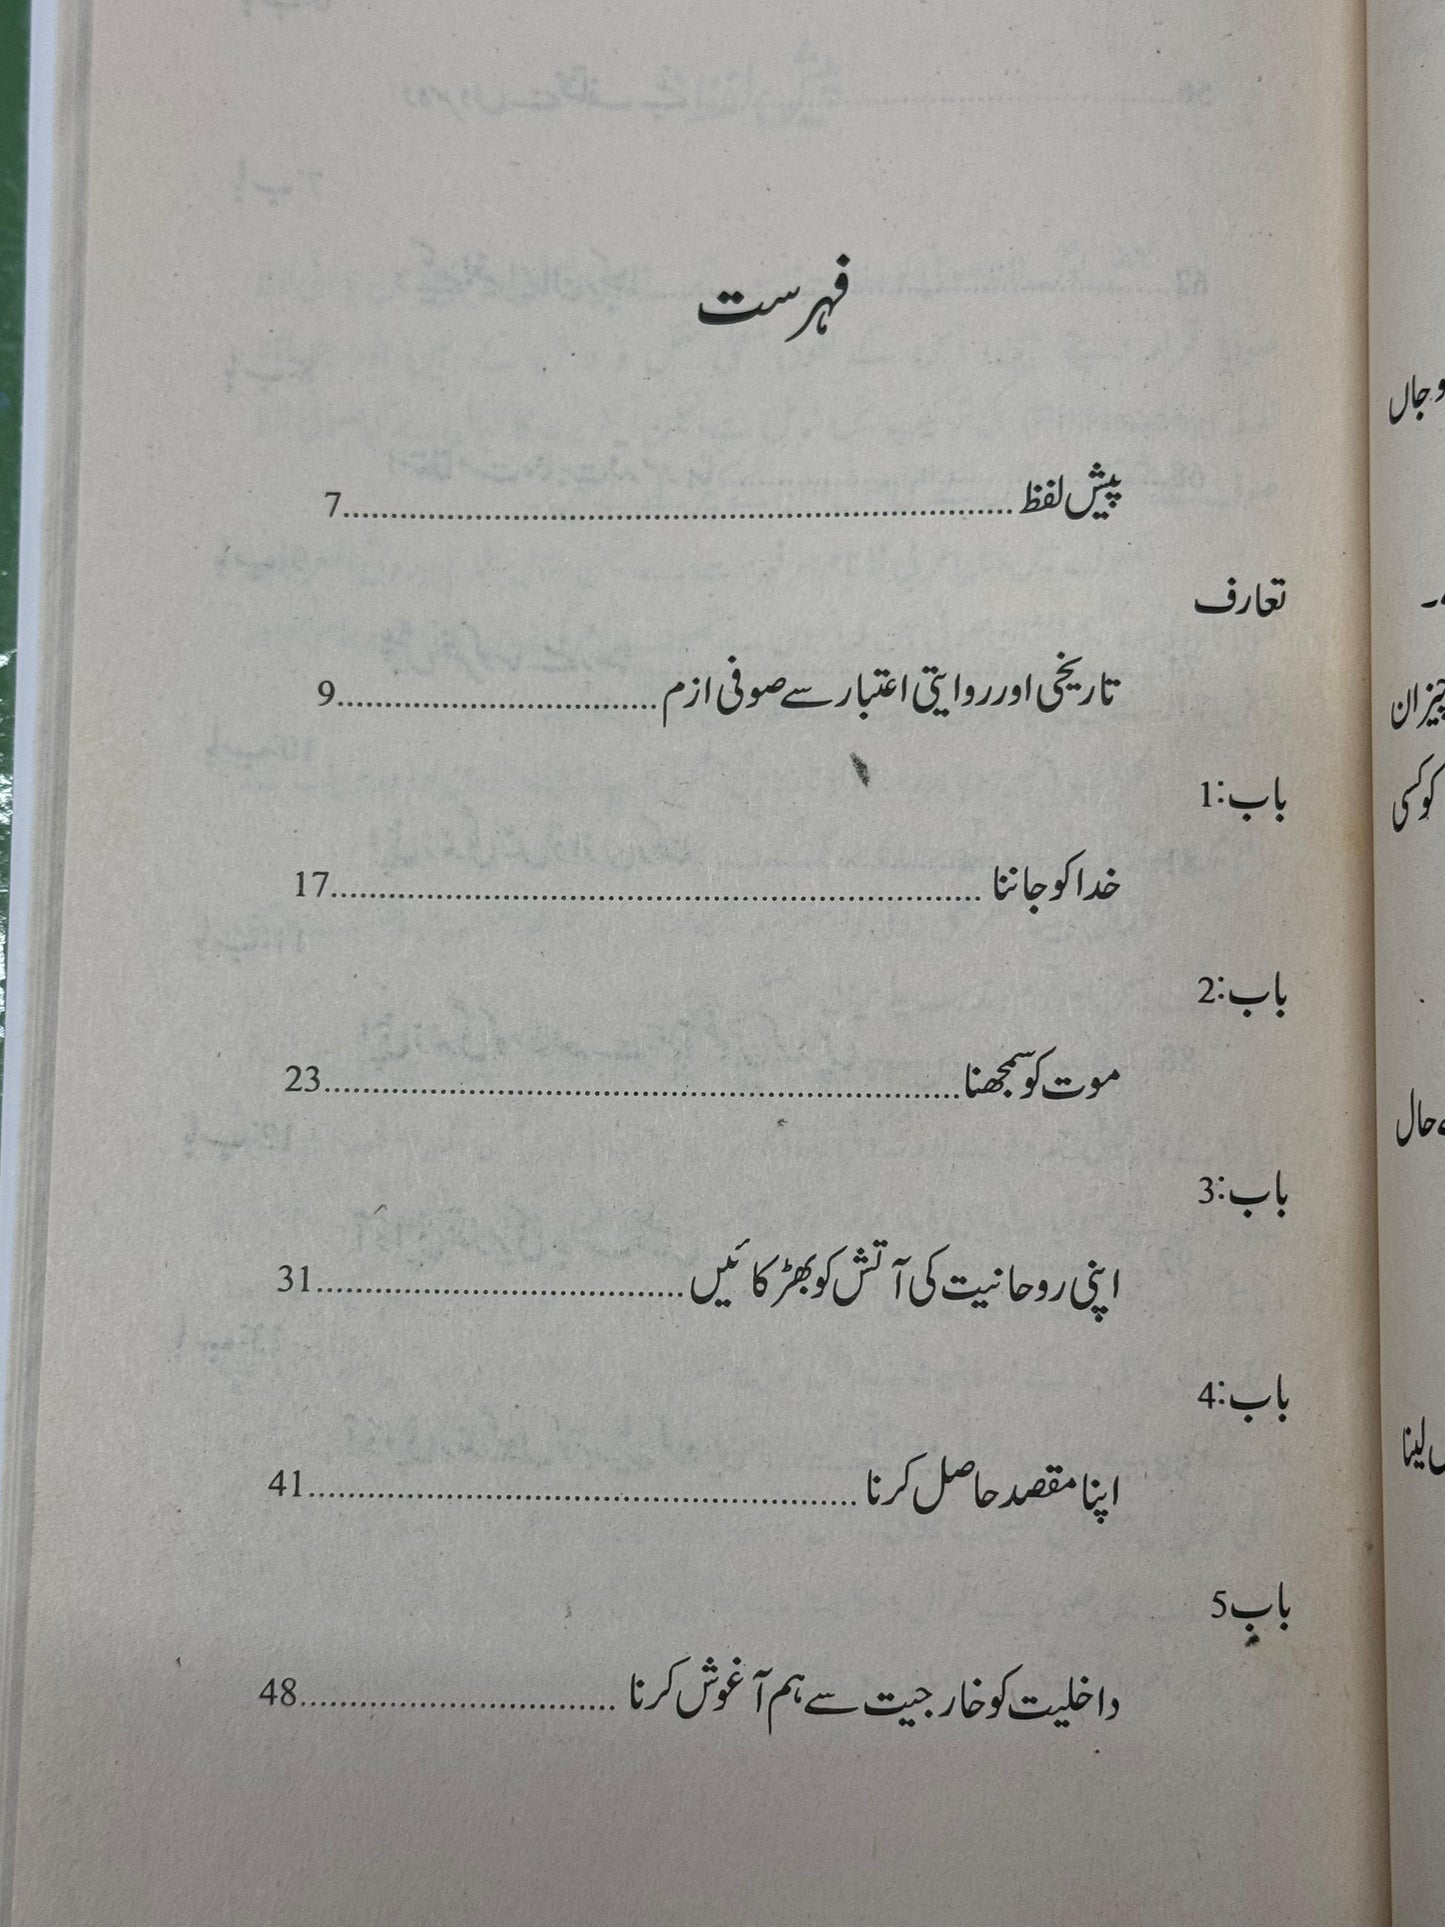 فہرست
پیش لفظ......................................................................7
تعارف
تاریخی اور روایتی اعتبار سے صوفی ازم..................................9
باب:1
خدا کو جاننا....................................................................17
باب:2
موت کو سمجھنا..................................................................23
باب:3
اپنی روحانیت کی آتش کو بھڑکائیں......................................31
باب:4
اپنا مقصد حاصل کرنا.........................................................41
باب5
داخلیت کو خارجیت سے ہم آغوش کرنا.................................48
و جاں
کو کسی
حال
لینا